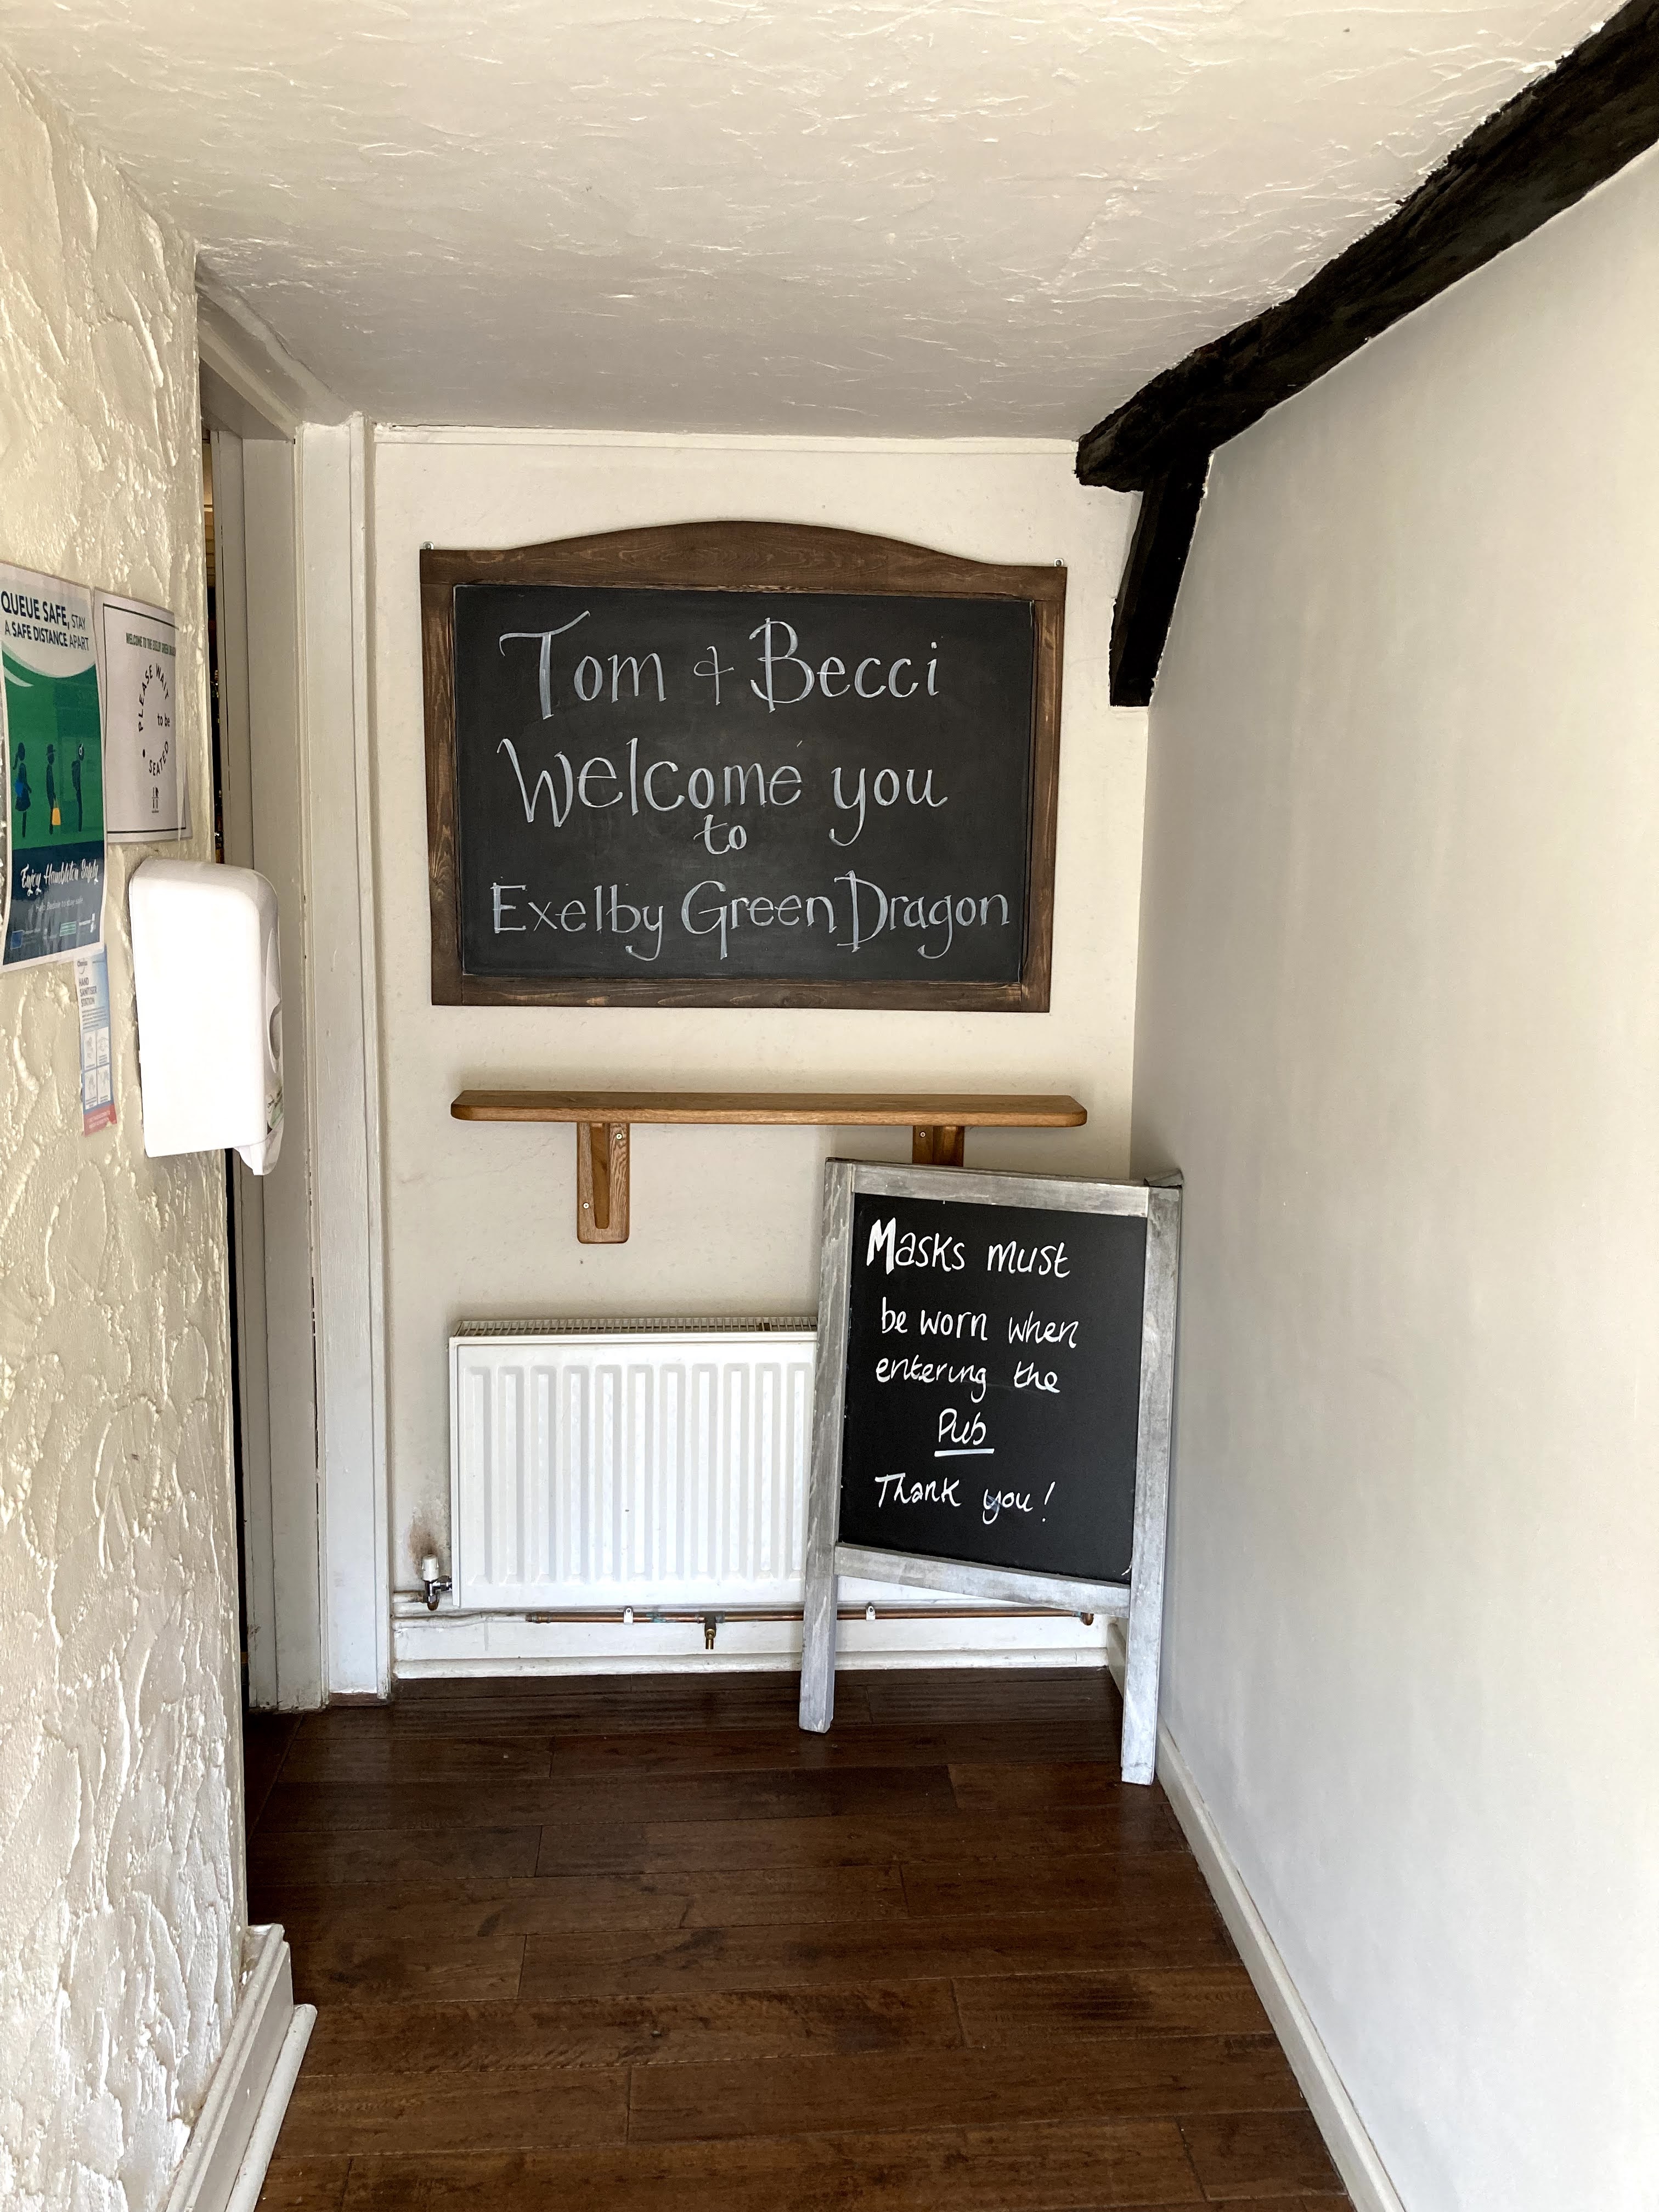 Tom & Becci
Welcome you
to
Exelby Green Dragon
Masks must
be worn when
entering the
Pub
Thank you!
QUEUE SAFE, STAY
A SAFE DISTANCE APART
Enjoy Hambleton Safely
WELCOME TO THE EXELBY GREEN
PLEASE WAIT
to be
SEATED
HAND
SANITISER
STATION